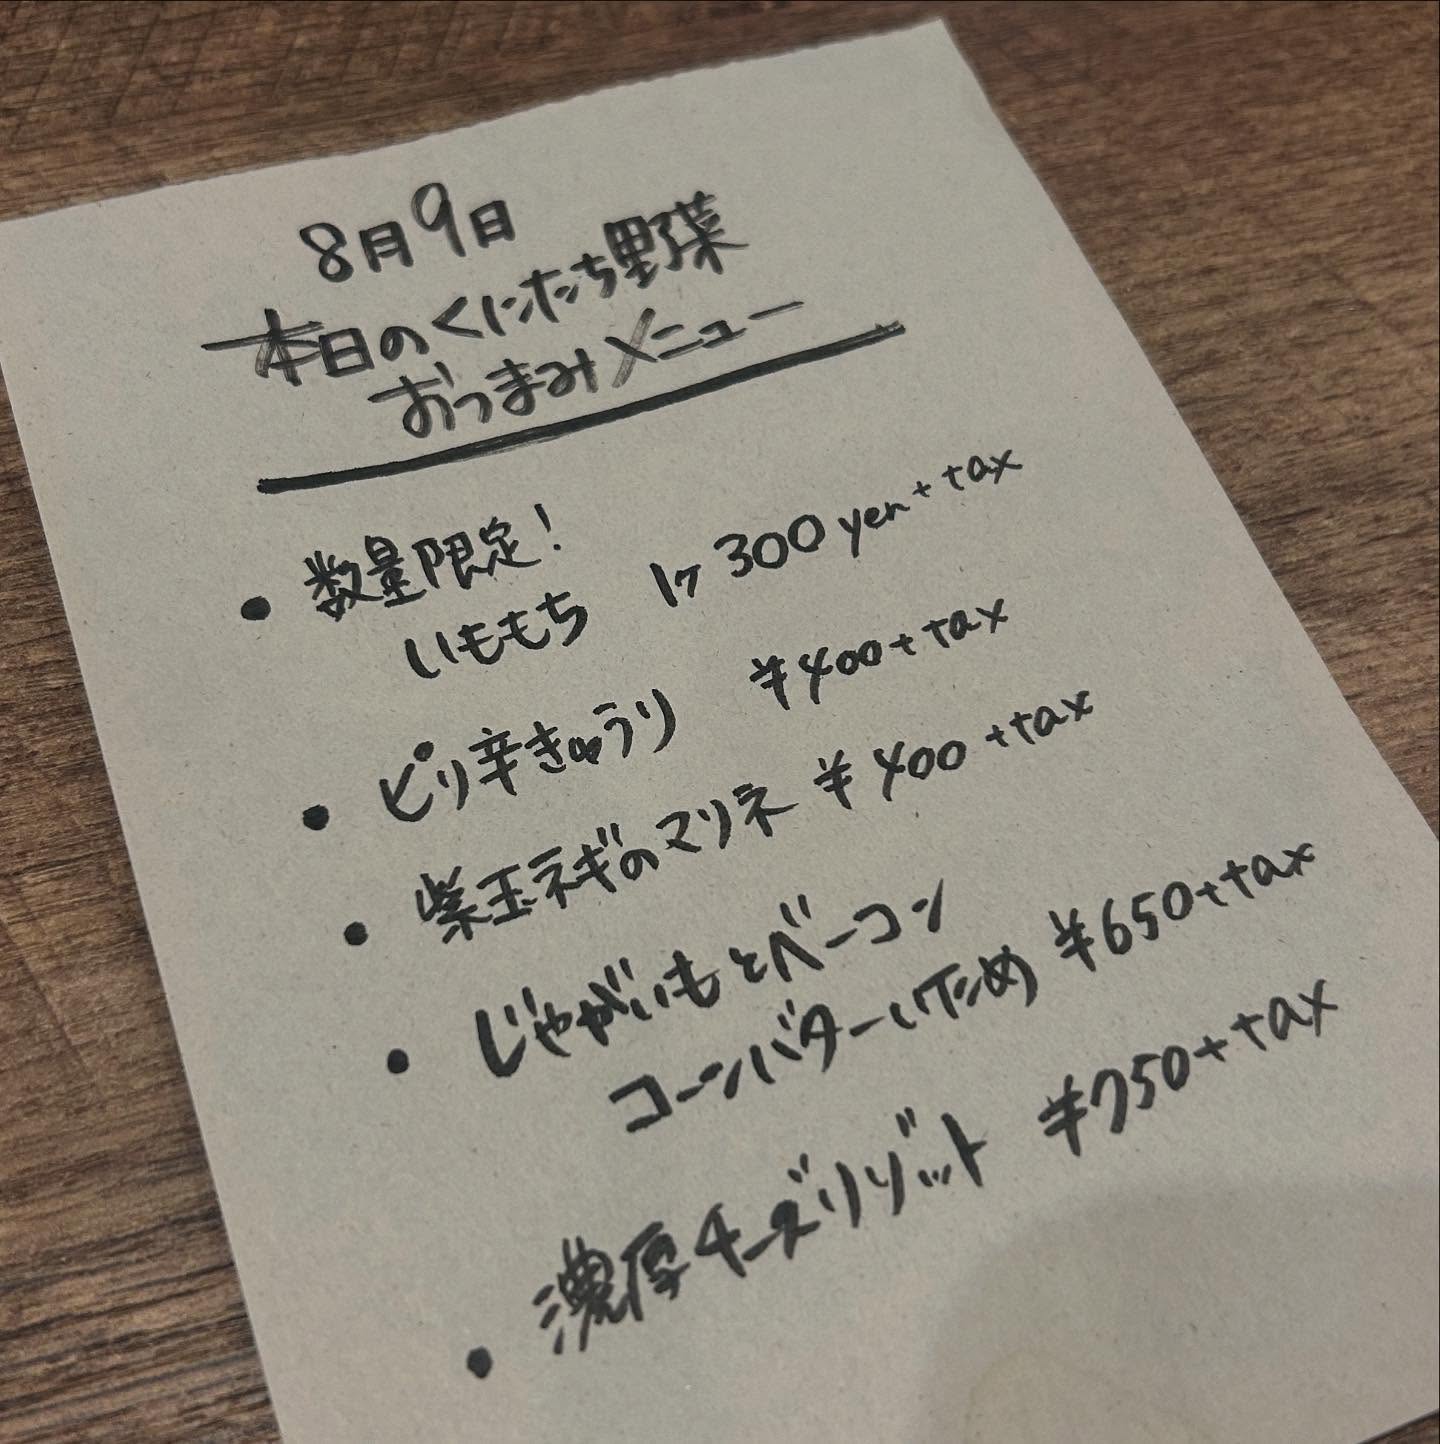 8月9日
本日のくにたち野菜
おつまみメニュー
• 数量限定!
いももち 1ヶ 300 yen + tax
• ピリ辛きゅうり ¥400 + tax
• 紫玉ネギのマリネ ¥400 + tax
• じゃがいもとベーコン
コーンバターいため ¥650 + tax
• 濃厚チーズリゾット ¥750 + tax